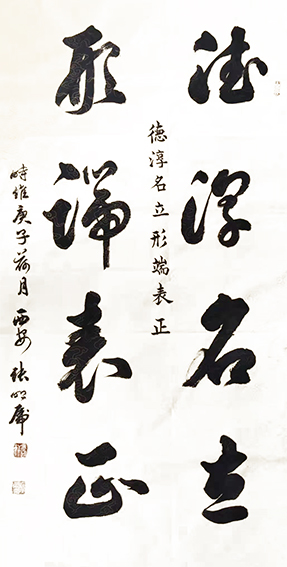 德淳名立
形端表正
德淳名立形端表正
時維庚子荷月西安張明虎